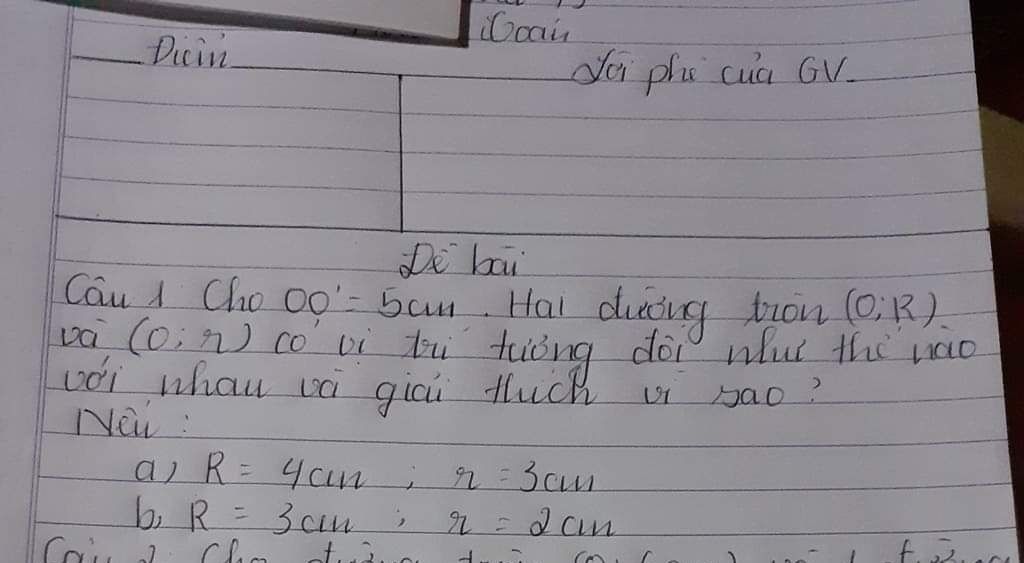 Điểm
Lời phê của GV.
Đề bài
Câu 1 Cho OO' = 5cm. Hai đường tròn (O; R)
và (O; r) có vị trí tương đối như thế nào
với nhau và giải thích vì sao?
Nếu :
a) R = 4cm ; r = 3cm
b, R = 3cm ; r = 2cm